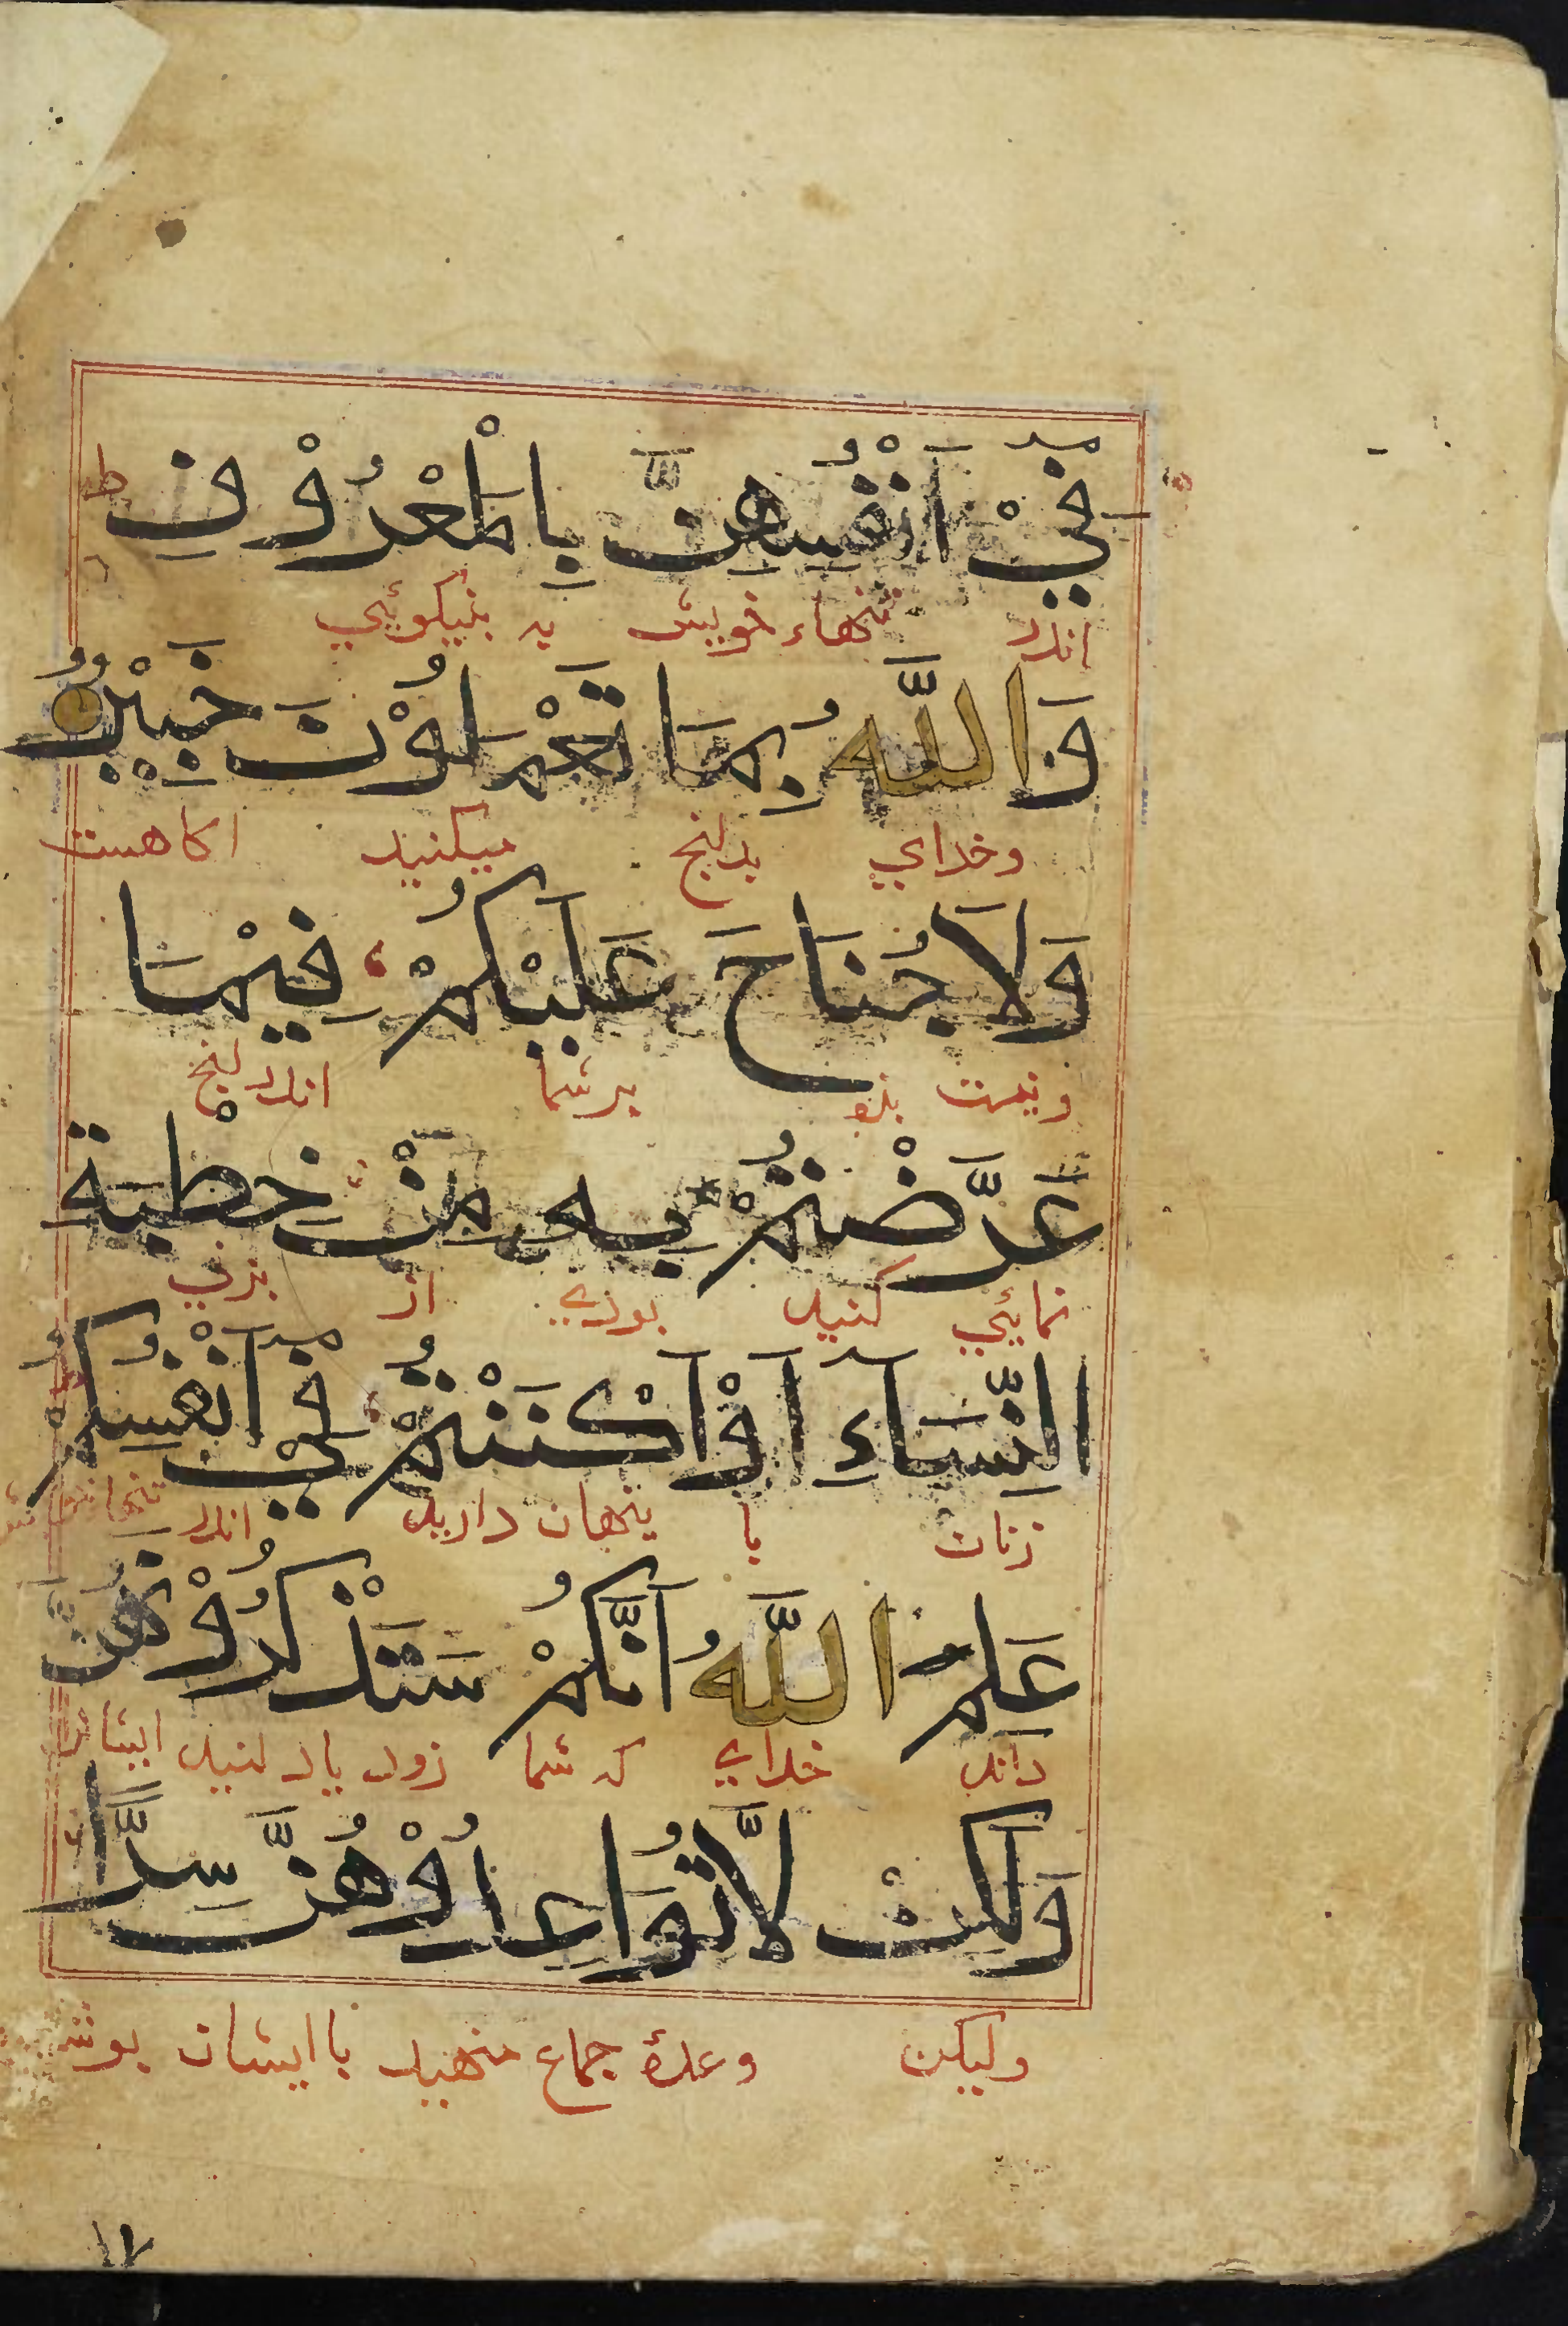 فِيْ اَنْفُسِهِنَّ بِالْمَعْرُوْفِ ط
اندر تنهاء خویش به بنیکوئي
وَاللَّهُ بِمَا تَعْمَلُوْنَ خَبِيْرٌ
وخداي بدانج میکنید اکاهست
وَلَا جُنَاحَ عَلَيْكُمْ فِيْمَا
ونیست بزه بر شما اندر انج
عَرَّضْتُمْ بِهِ مِنْ خِطْبَةِ
نمائي کنید بوزي از بزني
النِّسَاءِ اَوْ اَكْنَنْتُمْ فِيْ اَنْفُسِكُمْ
زنان یا پنهان دارید اندر
عَلِمَ اللَّهُ اَنَّكُمْ سَتَذْكُرُوْنَهُنَّ
داند خداي که شما زود یاد کنید ایشانرا
وَلَكِنْ لَّا تُوَاعِدُوْهُنَّ سِرًّا
ولیکن وعدۀ جماع منهید با ایشان
١٧